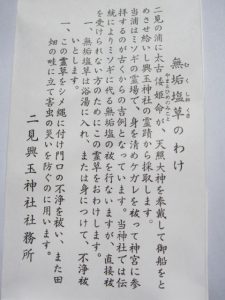 無垢塩草のわけ
むくしおくさ
二見の浦に太古倭姫命が、天照大神を奉戴して御船をと
やまとひめのみこと
めさせ給いし興玉神社の霊蹟から採取します。
当浦はミソギの霊場で、身を清めケガレを祓って神宮に参
拝するのが古くからの吉例となっています。当神社では伝
統によりミソギに代る無垢塩の祓を行いますが、直接祓
を受けられない方のためにこの霊草をおわけします。
一、無垢塩草は浴湯に入れ、または身につけて、不浄祓
いとします。
一、この霊草をシメ縄に付け門口の不浄を祓い、また田
畑の畦に立て害虫の災いを防ぐのに用います。
二見興玉神社社務所